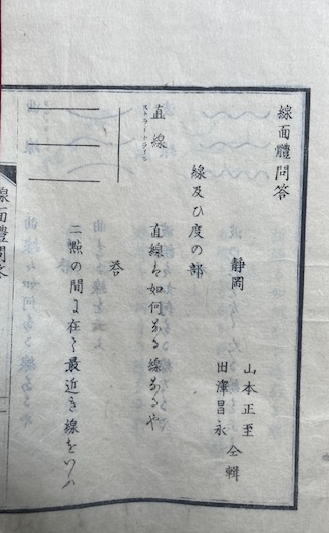 線面體問答
靜岡
山本正至
田澤昌永
仝輯
線及ひ度の部
直線
ストラートライン
直線とは如何なる線なるや
答
二點の間に在て最近き線をいふ
線面體問答